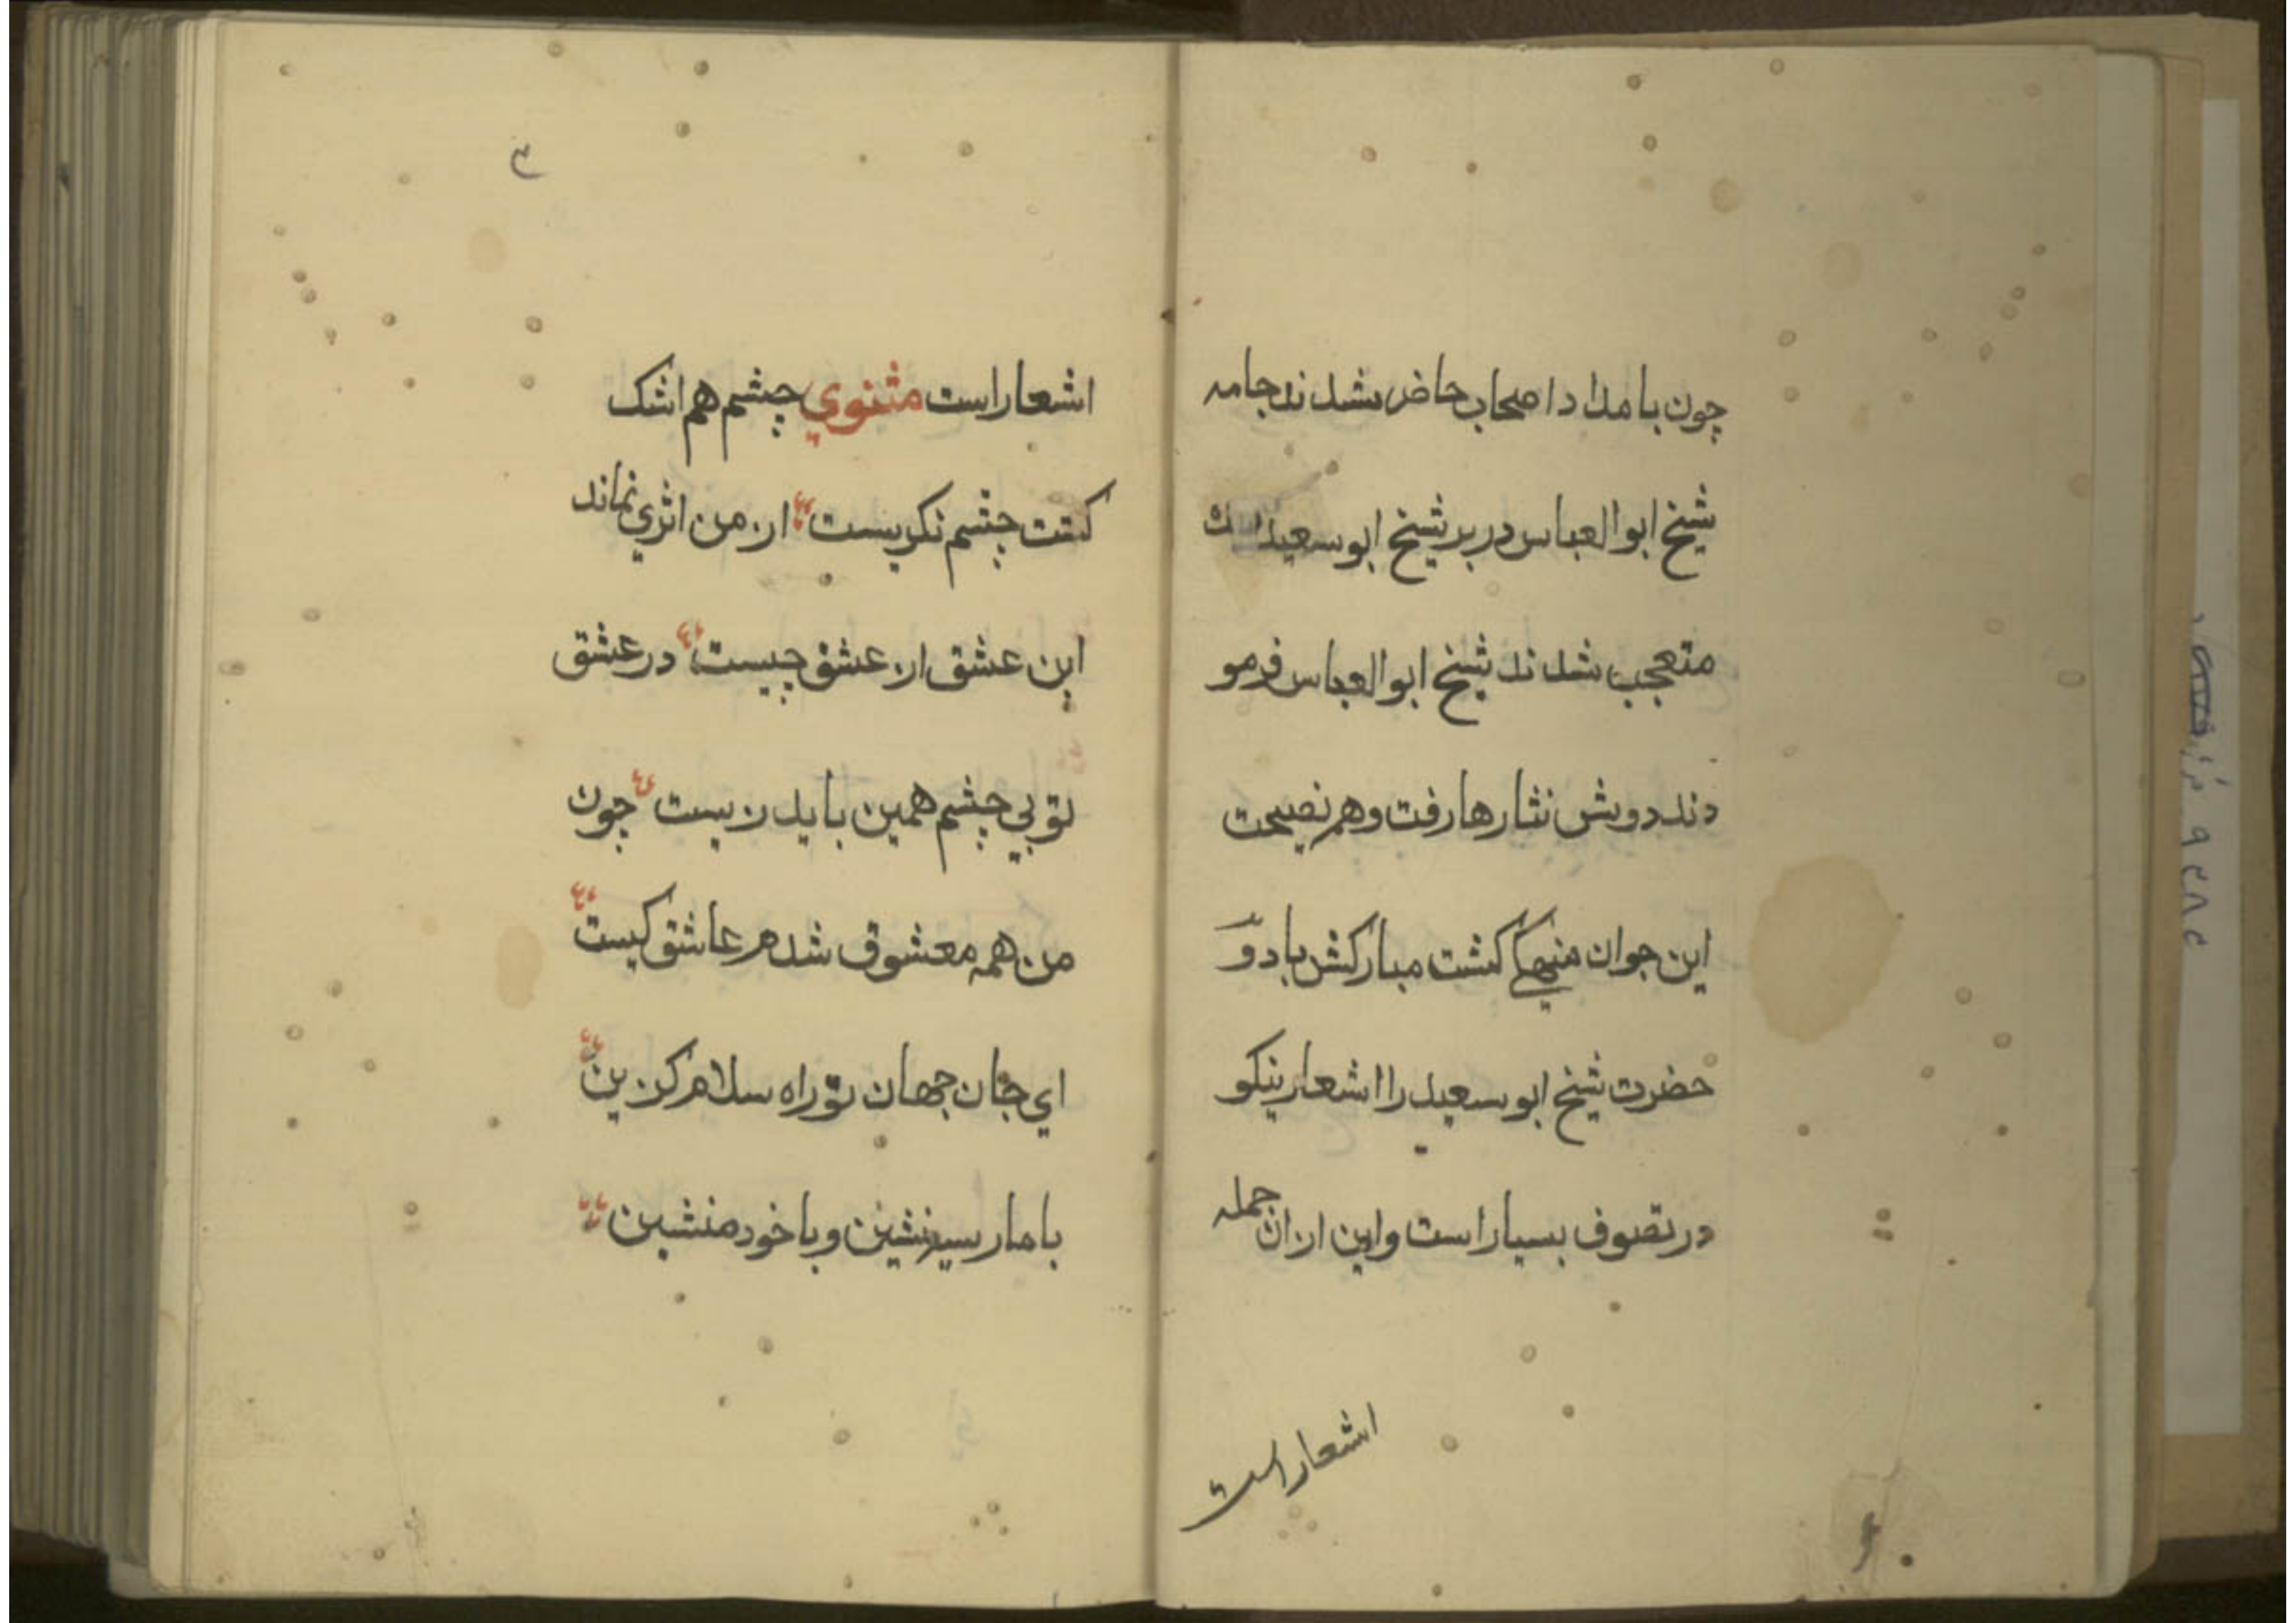 چون بامداد اصحاب حاضر شدند جامه
شیخ ابوالعباس در بر شیخ ابو سعید
متعجب شدند شیخ ابوالعباس فرمو
دند دوش نثارها رفت وهم نصیحت
این جوان منیهکی کشت مبارکش باد و
حضرت شیخ ابو سعید را اشعار نیکو
در تصوف بسیار است واین ازان جمله
اشعار است
۳
اشعار است مثنوي چشم هم اشک
کشت چشم نکریست از من اثري نماند
این عشق از عشق چیست در عشق
تو بی چشم همین باید زیست چون
من همه معشوق شدم عاشق کیست
اي جان جهان تو راه سلام کزین
با مار سیر نشین و با خود منشین